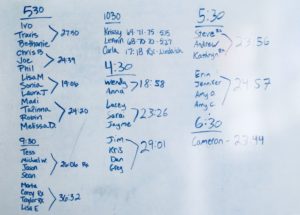 530
Ivo
Travis
Bethanie
Chris B
27:50
Joe
Phil
24:39
Lisa M
Sonia
Laura J
19:06
Madi
Tatianna
Robin
Melissa D.
24:20
9:30
Tess
Michael W
Jason
Sean
26:06 Rx
Marta
Corey Rx
Taylor Rx
Lisa E
36:32
1030
Krissy 69-71-75-
Lauren 68-70-70-
Carla 17:18 Rx-
4:30
Wendy
Anna
18:58
Lacey
Sarai
Jayme
23:26
Jim
Kris
Dan
Greg
29:01
5:30
Steve
Andrew
Kathryn
23:56
Erin
Jennifer
Amy D
Amy C
24:57
6:30
Cameron - 23:44